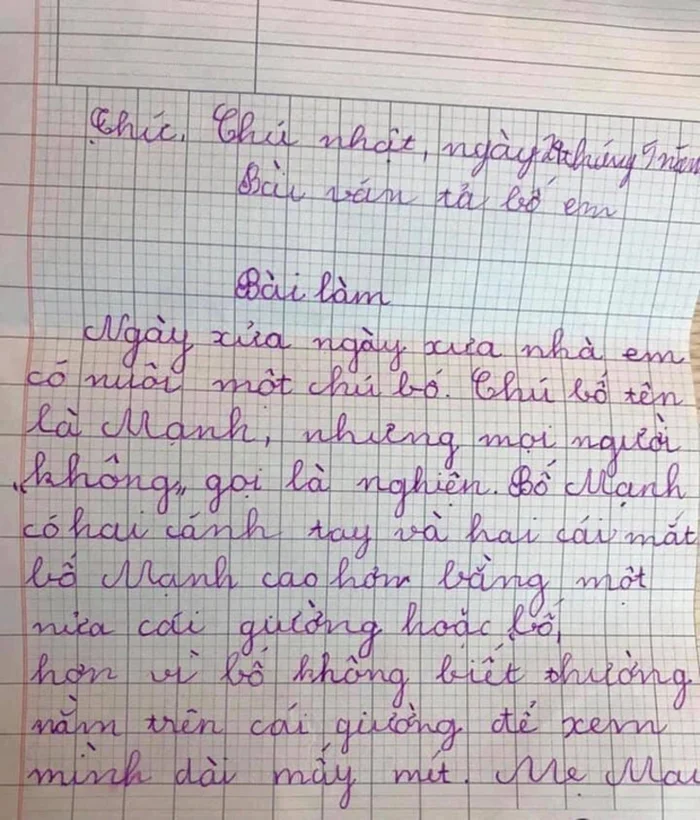 Thức, Thứ nhật, ngày 24 tháng 5 năm
Bài ván tả bố em
Bài làm
Ngày xửa ngày xưa nhà em
có nuôi một chú bố. Chú bố tên
là Mạnh, nhưng mọi người
"không" gọi là nghiện. Bố Mạnh
có hai cánh tay và hai cái mắt
bố Mạnh cao hơn bằng một
nửa cái giường hoặc bố,
hơn vì bố không biết thường
nằm trên cái giường để xem
mình dài mấy mét. Mẹ Mai